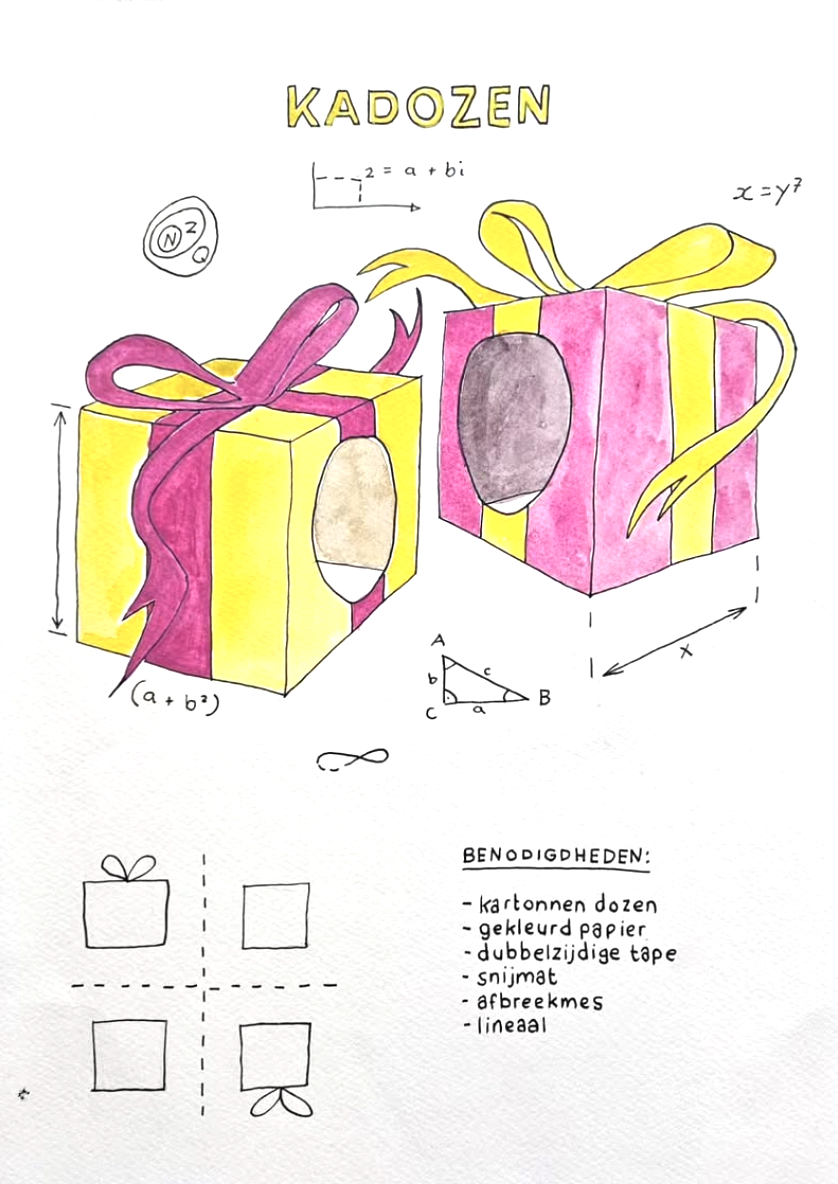 KADOZEN
z = a + bi
x = y⁷
N Z Q
(a + b²)
x
A
b c
C a B
BENODIGDHEDEN:
- kartonnen dozen
- gekleurd papier
- dubbelzijdige tape
- snijmat
- afbreekmes
- lineaal